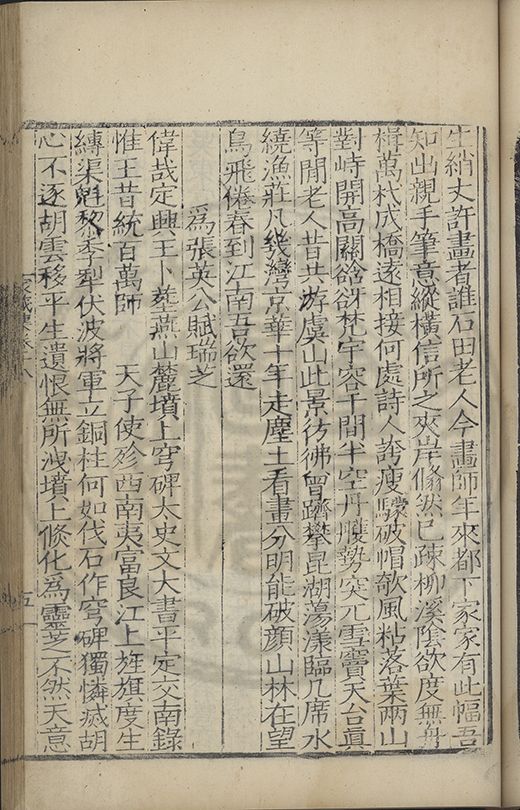 生綃丈許畫者誰石田老人今畫師年來都下家家有此幅吾
知出親手筆意縱橫信所之夾岸翛然已疎柳溪陰欲度無舟
楫萬杙成橋遠相接何處詩人跨瘦驢破帽欹風粘落葉兩山
對峙開高關谽谺梵宇容千間半空丹雘勢突兀雪竇天台真
等閒老人昔共游虞山此景彷彿曾躋攀昆湖蕩漾臨几席水
繞漁莊凡幾灣京華十年走塵土看畫分明能破顏山林在望
鳥飛倦春到江南吾欲還
為張英公賦瑞芝
偉哉定興王卜塟燕山麓墳上穹碑太史文大書平定交南錄
惟王昔統百萬師　天子使殄西南夷富良江上旌旗度生
縛渠魁黎季犁伏波將軍立銅柱何如伐石作穹碑獨憐滅胡
心不逐胡雲移平生遺恨無所洩墳上倐化為靈芝不然天意
家藏藁卷
五